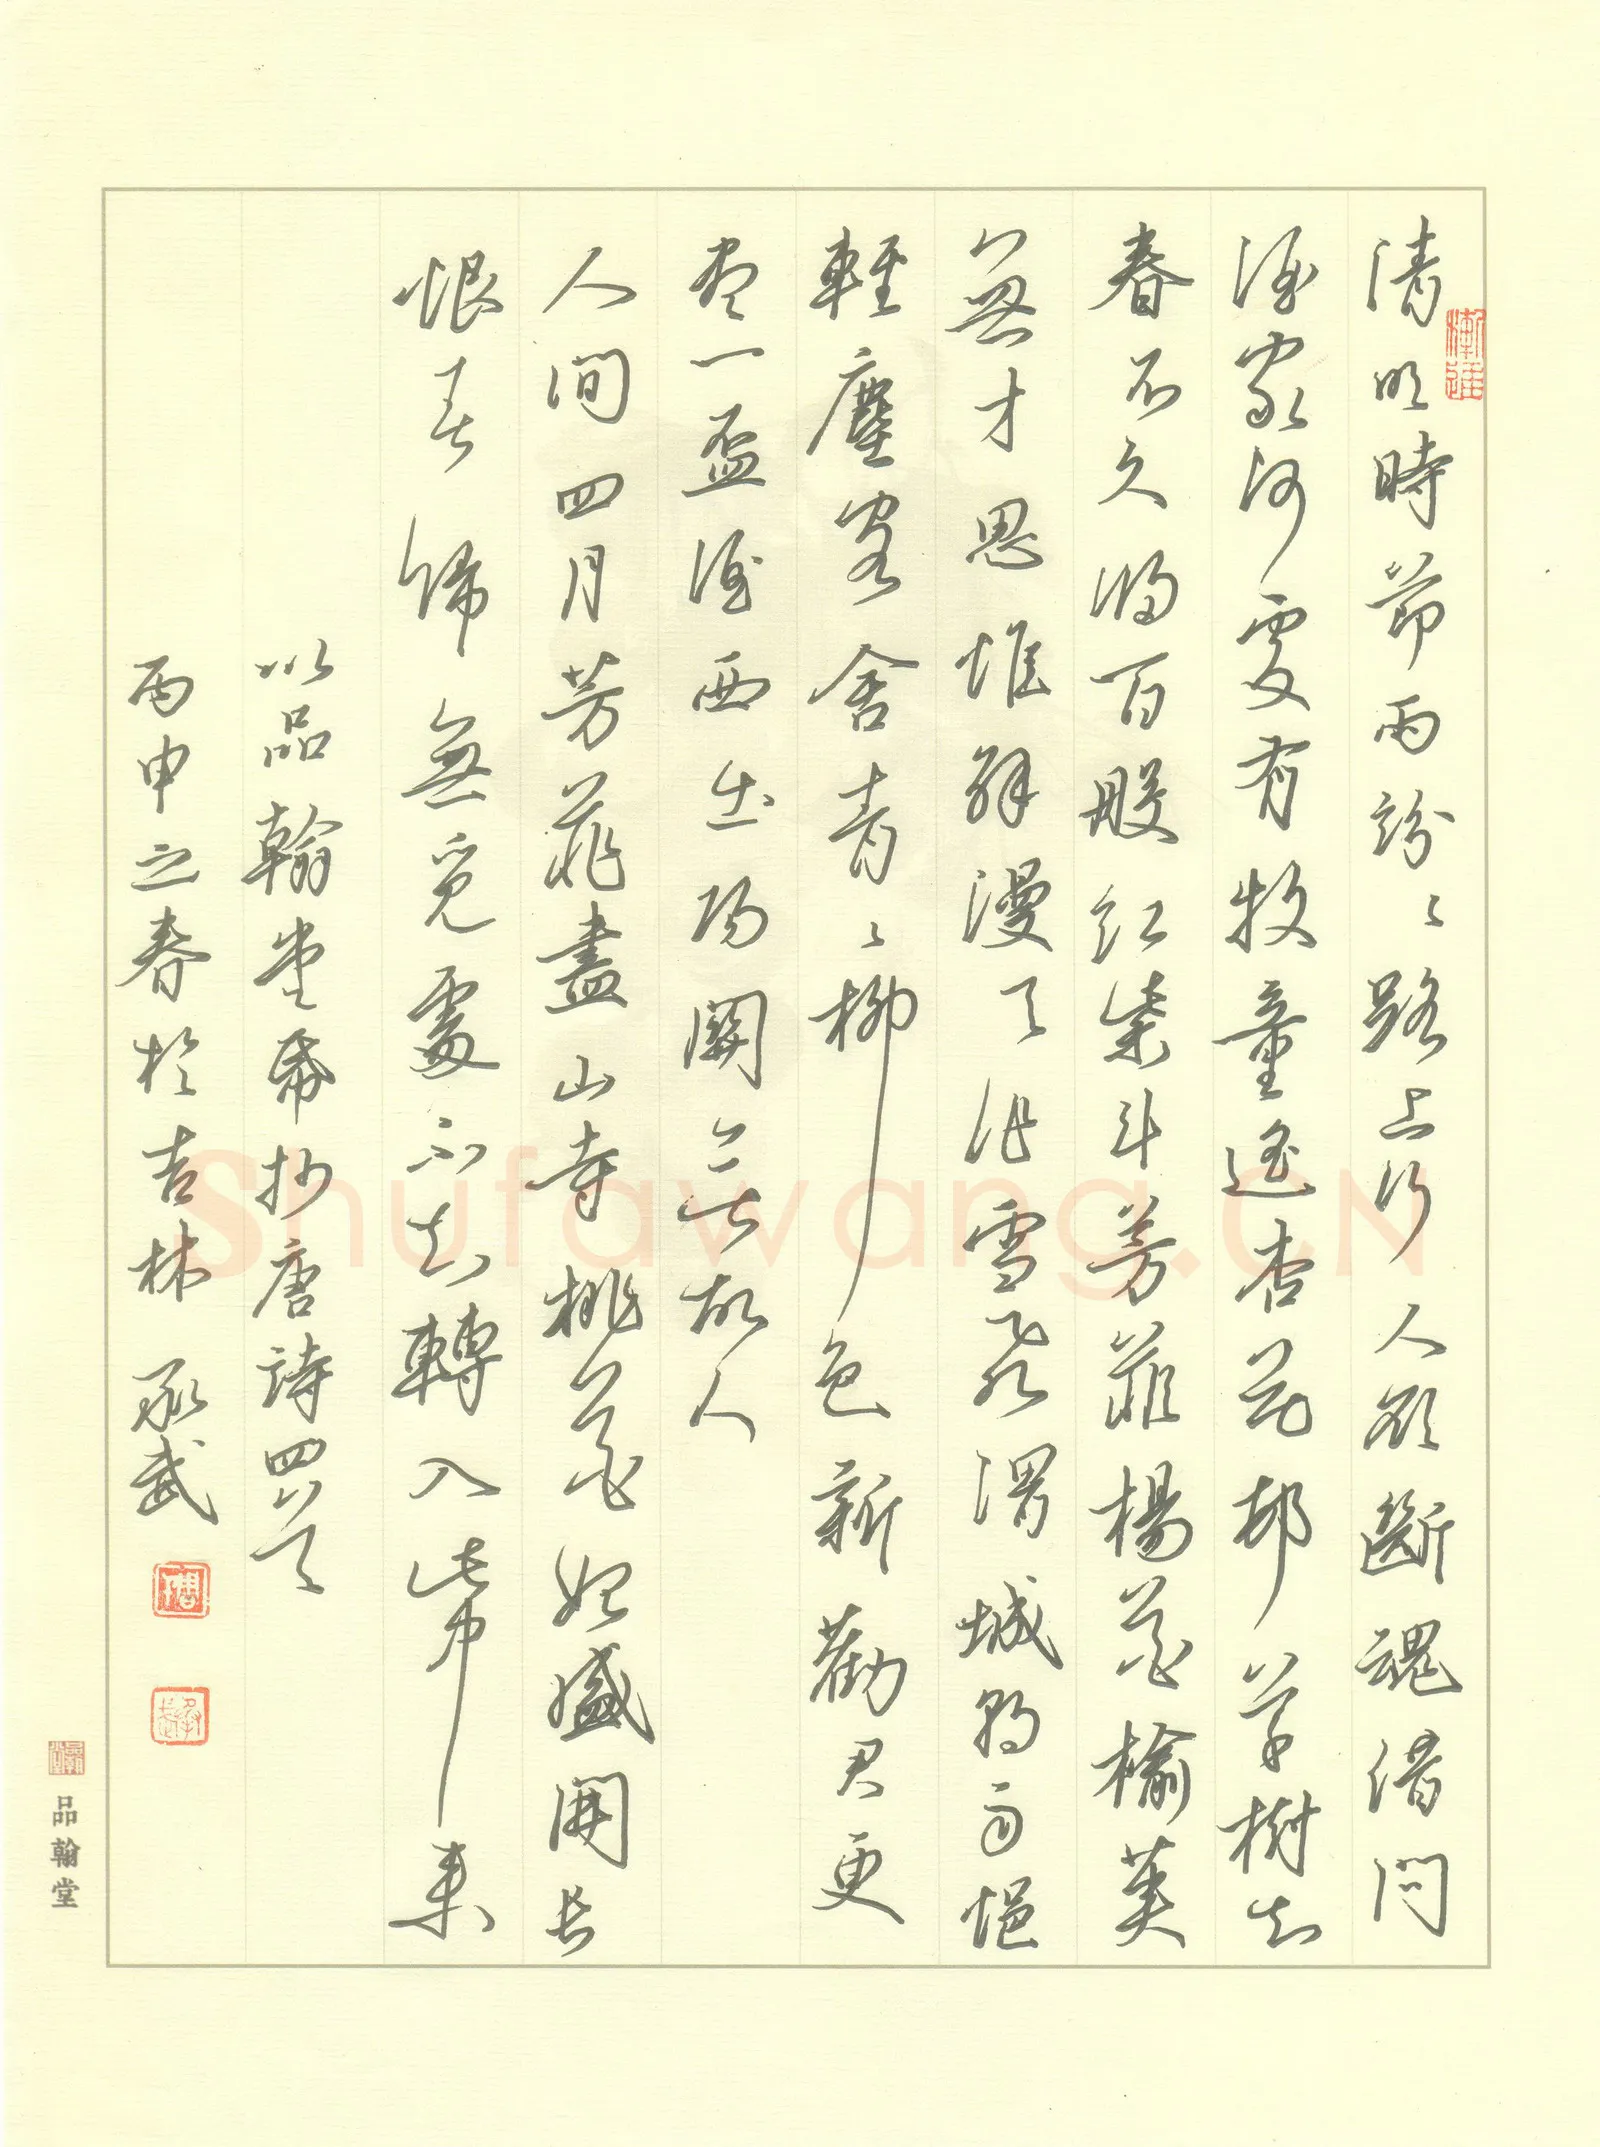 清明時節雨紛〻路上行人欲斷魂借問
酒家何處有牧童遙杏花邨草樹知
春不久歸百般紅紫斗芳菲楊花榆莢
無才思惟解漫天作雪飛渭城朝雨浥
輕塵客舍青〻柳色新勸君更
盡一盃酒西出陽關無故人
人間四月芳菲盡山寺桃花始盛開長
恨春歸無覓處不知轉入此中來
以品翰堂帋抄唐詩四首
丙申之春於吉林 承武
品翰堂
Shufawang.CN